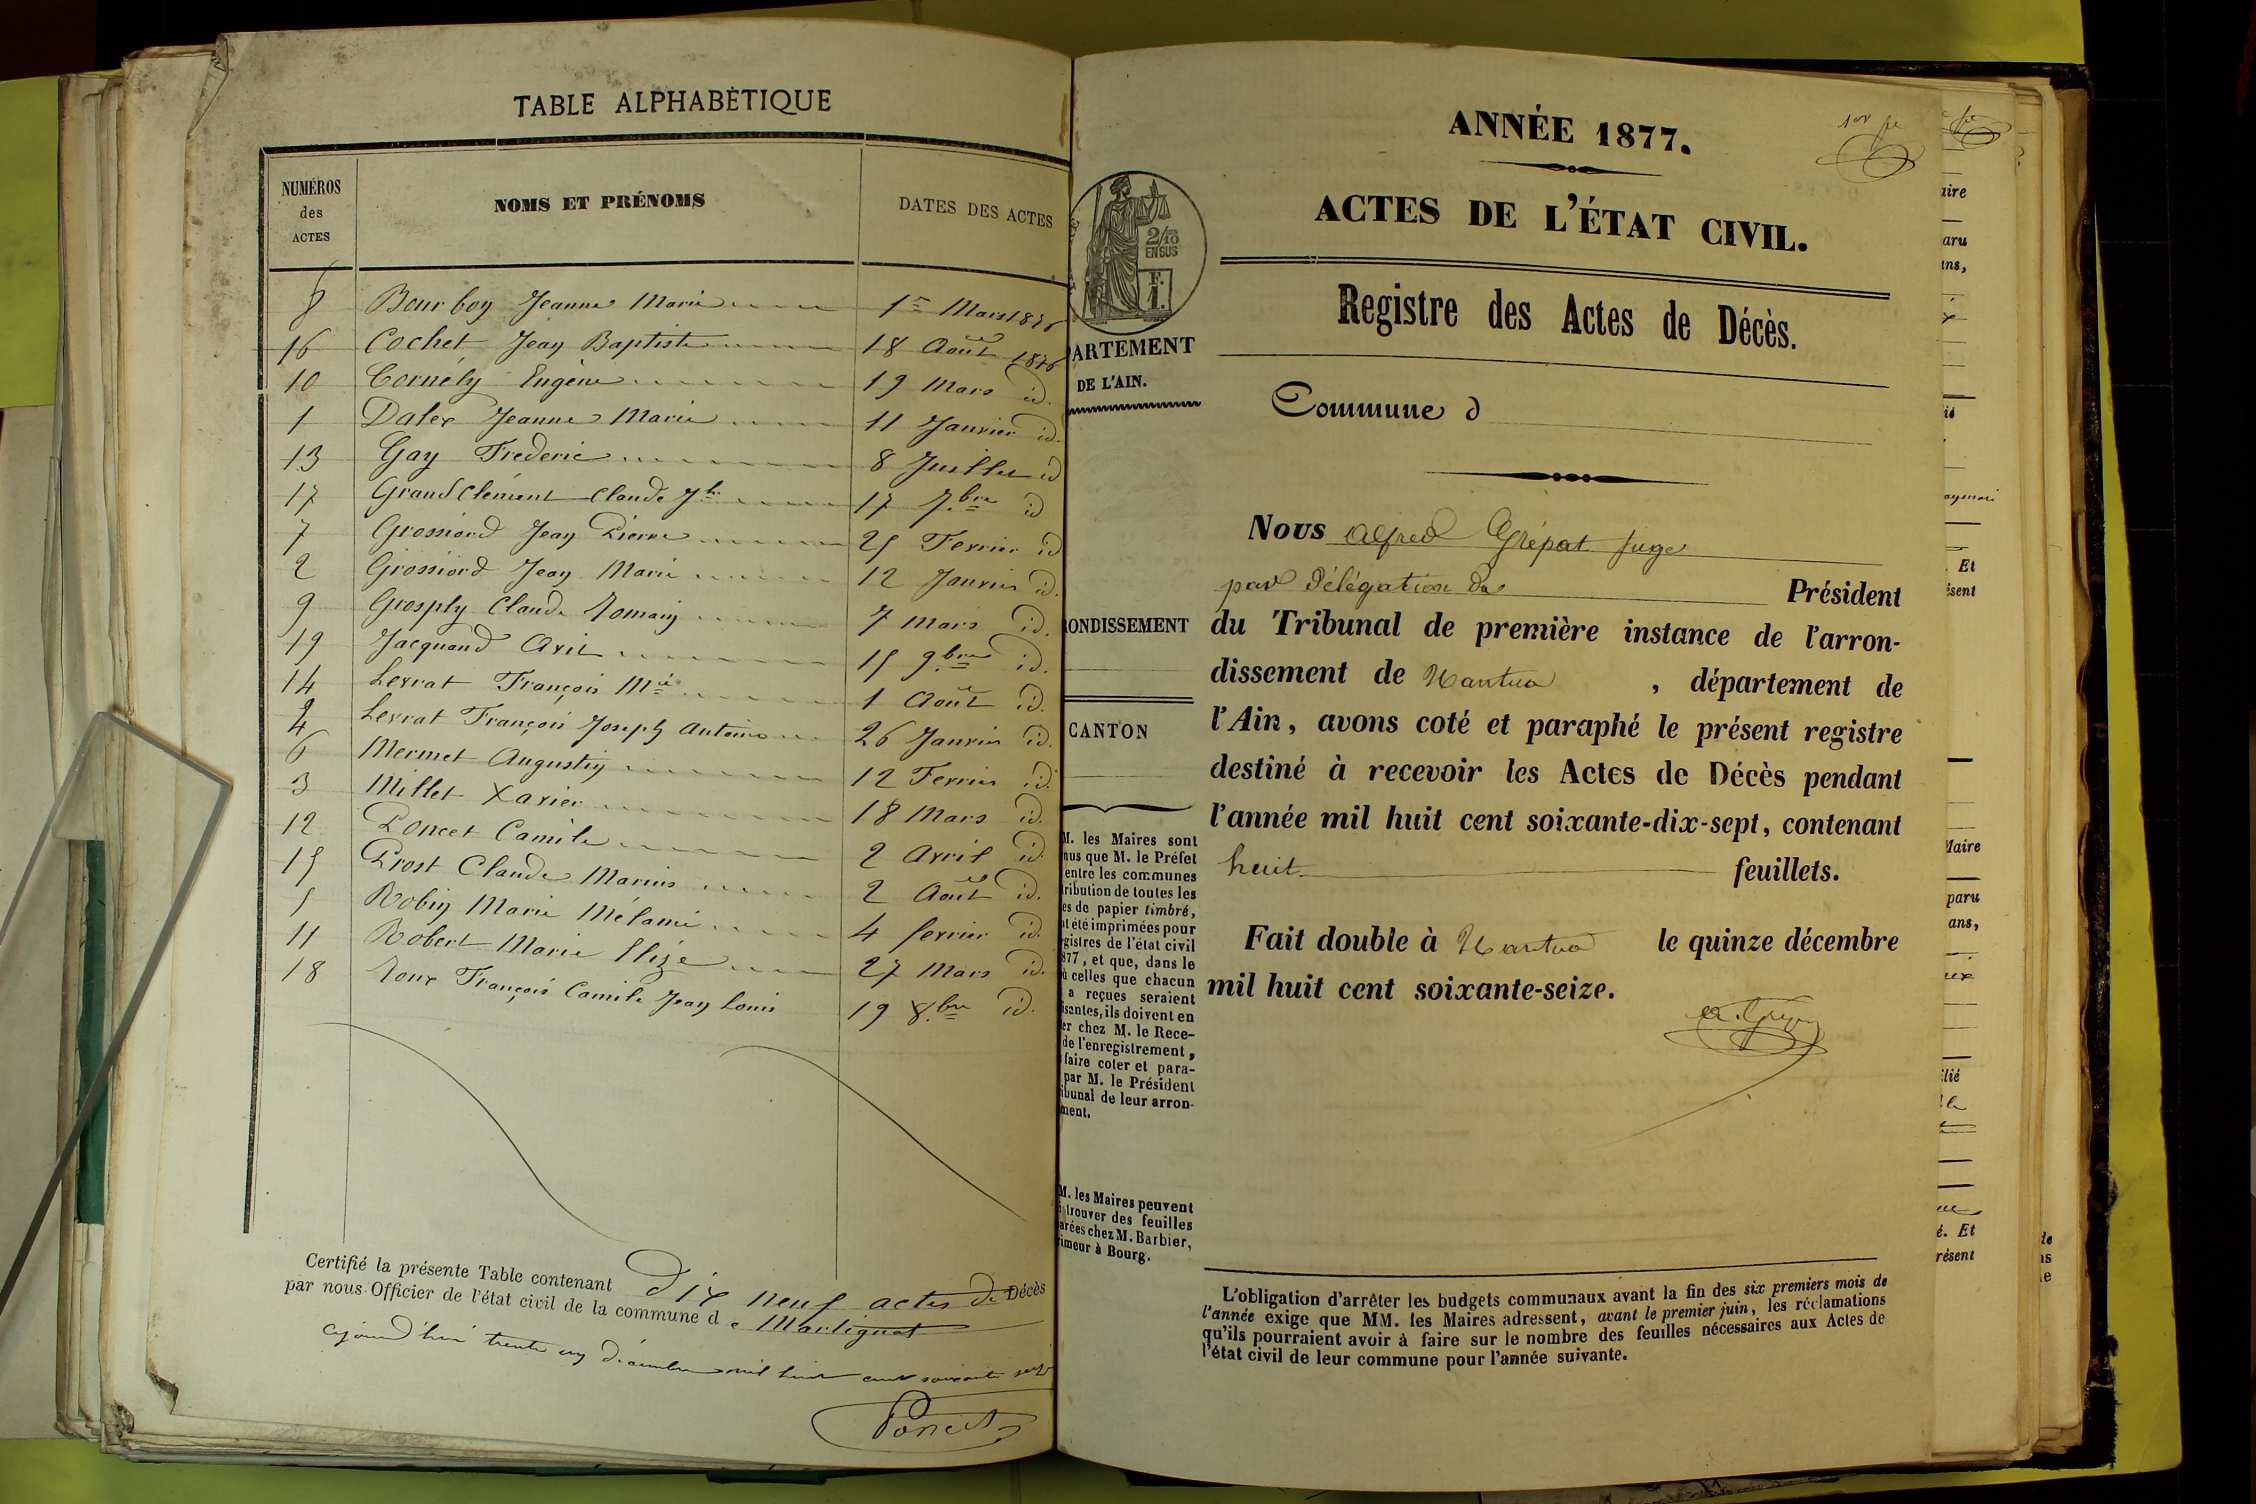 TABLE ALPHABÉTIQUE
NUMÉROS des ACTES NOMS ET PRÉNOMS DATES DES ACTES
8 Bourboy Jeanne Marie 1er Mars 1876
16 Cochet Jean Baptiste 18 Août 1876
10 Cornély Eugène 19 Mars id.
1 Dalex Jeanne Marie 11 Janvier id.
13 Gay Frederic 8 Juillet id
17 Grandclément Claude Jh 17 7bre id
7 Grossiord Jean Pierre 25 Fevrier id
2 Grossiord Jean Marie 12 Janvier id.
9 Grosply Claude Romain 7 Mars id.
19 Jacquand Avit 15 9bre id.
14 Levrat François Mie 1 Août id.
4 Levrat François Joseph Antoine 26 Janvier id.
6 Mermet Augustin 12 Fevrier id.
3 Millet Xavier 18 Mars id.
12 Poncet Camile 2 Avril id.
15 Prost Claude Marius 2 Août id.
5 Robin Marie Mélanie 4 fevrier id.
11 Robert Marie Elize 27 Mars id.
18 Roux François Camile Jean Louis 19 8bre id.
Certifié la présente Table contenant Dix neuf actes de Décès
par nous Officier de l'état civil de la commune de Martignat
ajourd'hui trente un Décembre mil huit cent soixante seize
Poncet
1er fe
ANNÉE 1877.
ACTES DE L'ÉTAT CIVIL.
2/10 EN SUS
F. 1.
Registre des Actes de Décès.
ARTEMENT
DE L'AIN.
Commune d
Nous Alfred Grépat Juge
par délégation du Président
du Tribunal de première instance de l'arron-
dissement de Nantua , département de
l'Ain, avons coté et paraphé le présent registre
destiné à recevoir les Actes de Décès pendant
l'année mil huit cent soixante-dix-sept, contenant
huit feuillets.
Fait double à Nantua le quinze décembre
mil huit cent soixante-seize.
ONDISSEMENT
CANTON
M. les Maires sont
nus que M. le Préfet
entre les communes
ribution de toutes les
es de papier timbré,
t été imprimées pour
gistres de l'état civil
877, et que, dans le
ù celles que chacun
a reçues seraient
isantes, ils doivent en
er chez M. le Rece-
de l'enregistrement,
faire coter et para-
par M. le Président
ibunal de leur arron-
ment.
M. les Maires peuvent
trouver des feuilles
arées chez M. Barbier,
imeur à Bourg.
L'obligation d'arrêter les budgets communaux avant la fin des six premiers mois de
l'année exige que MM. les Maires adressent, avant le premier juin, les réclamations
qu'ils pourraient avoir à faire sur le nombre des feuilles nécessaires aux Actes de
l'état civil de leur commune pour l'année suivante.
aire
aru
ans,
Et
ésent
Maire
paru
ans,
lié
é. Et
résent